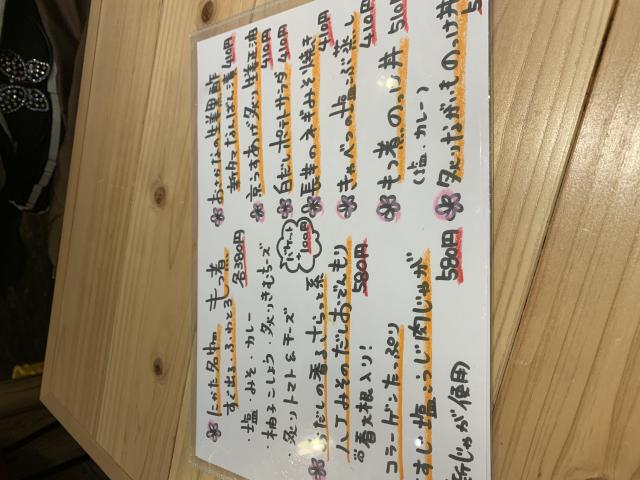 しゃた名物 もつ煮
すぐ出る ふわとろ 各380円
・塩・みそ・カレー
・柚子こしょう・炙りきむちーズ
・炙りトマト&チーズ
バケット
100円
だしの香るさらっと系
八丁みそのだしおでんもり
春大根入り! 580円
コラーゲンたっぷり
すじ塩こうじ肉じゃが
580円
新じゃが使用
410円
京うすあげ炙り 生姜醤油 410円
白だしポテトサラダ 410円
長芋のネギみそ焼き 410円
きゃべつの塩こんぶ蒸し 410円
もつ煮のっけ丼 510円
(塩・カレー)
炙りながいものっけ丼